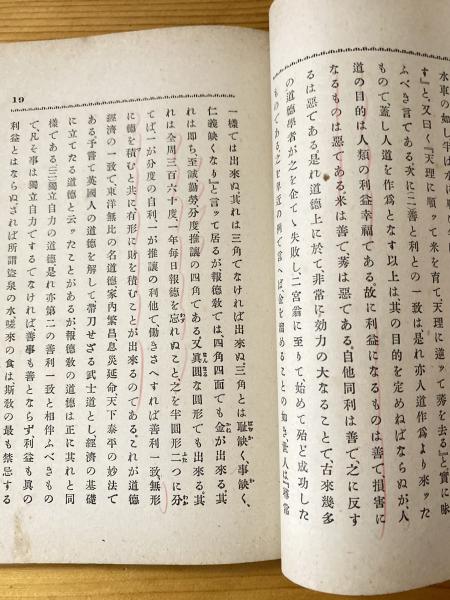 水車の如し半は水に
す』と、又曰く『天理に順つて米を育て天理に逆つて莠を去る』と、實に味
ふべき言である、次に二善と利との一致は是れ亦人道作爲より來ツた
もので蓋し人道を作爲となす以上は其の目的を定めねばならぬが、人
道の目的は人類の利益幸福である。故に利益になるものは善で損害に
なるものは惡である、米は善で、莠は惡である。自他同利は善で、之に反す
るは惡である、是れ道德上に於て非常に効力の大なることで、古來幾多
の道德學者が之を企て失敗し、二宮翁に至りて始めて殆ど成功した
ものである、
19
一樣では出來ぬ、其れは三角でなければ出來ぬ三角とは恥缺く、事缺く、
仁義缺くなり』と言ッて居るが報德敎では、四角四面でも金が出來る、其
れは即ち、至誠勤勞分度推讓の四角である、又眞圓な圓形でも出來る、其
れは全周三百六十度一年每日報德を忘れぬこと、之を半圓形二つに分
てば、一が分度の自利、一が推讓の利他で働きさへすれば善利一致、無形
に德を積むと共に有形に財を積むことが出來るのである、これが道德
經濟の一致で、東洋無比の名道德、家內繁昌息災延命天下泰平の妙法で
ある、予嘗て英國人の道德を解して帶刀せざる武士道とし經濟の基礎
に立てたる道德と云ッたことがあるが報德敎の道德は正に其れと同
樣である、三獨立自力の道德是れ亦第二の善利一致と相伴ふべきもの
で、凡そ事は獨立自力でするでなければ善事も善とならず利益も眞の
利益とはならぬ、されば所謂盜泉の水嗟來の食は斯敎の最も禁忌する